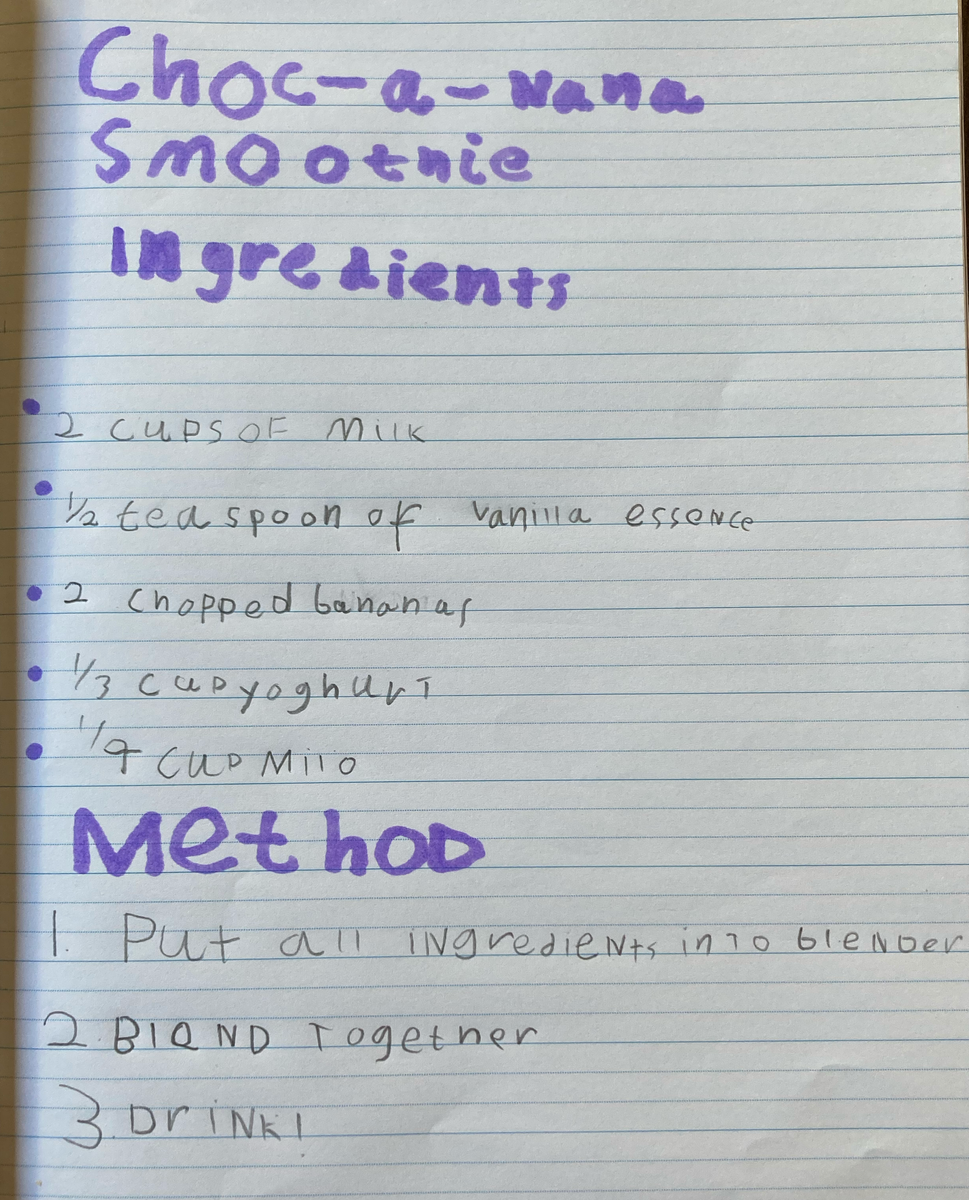 Choc-a-nana
Smoothie
Ingredients
• 2 cups of Milk
• 1/2 teaspoon of vanilla essence
• 2 chopped bananas
• 1/3 cup yoghurt
• 1/4 cup Milo
Method
1. Put all ingredients into blender
2. Blend Together
3. Drink!